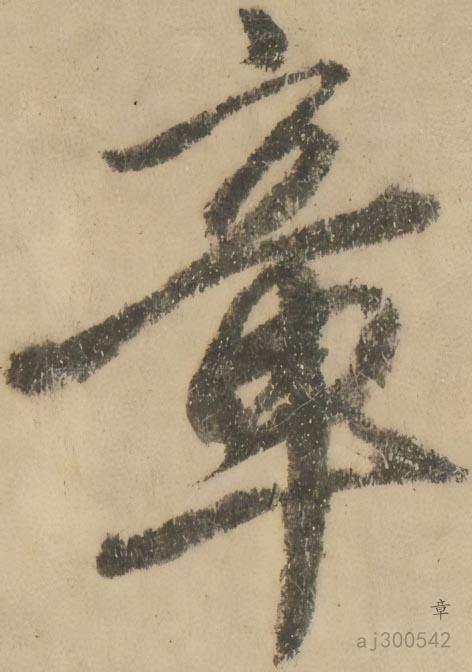 章
章
aj300542